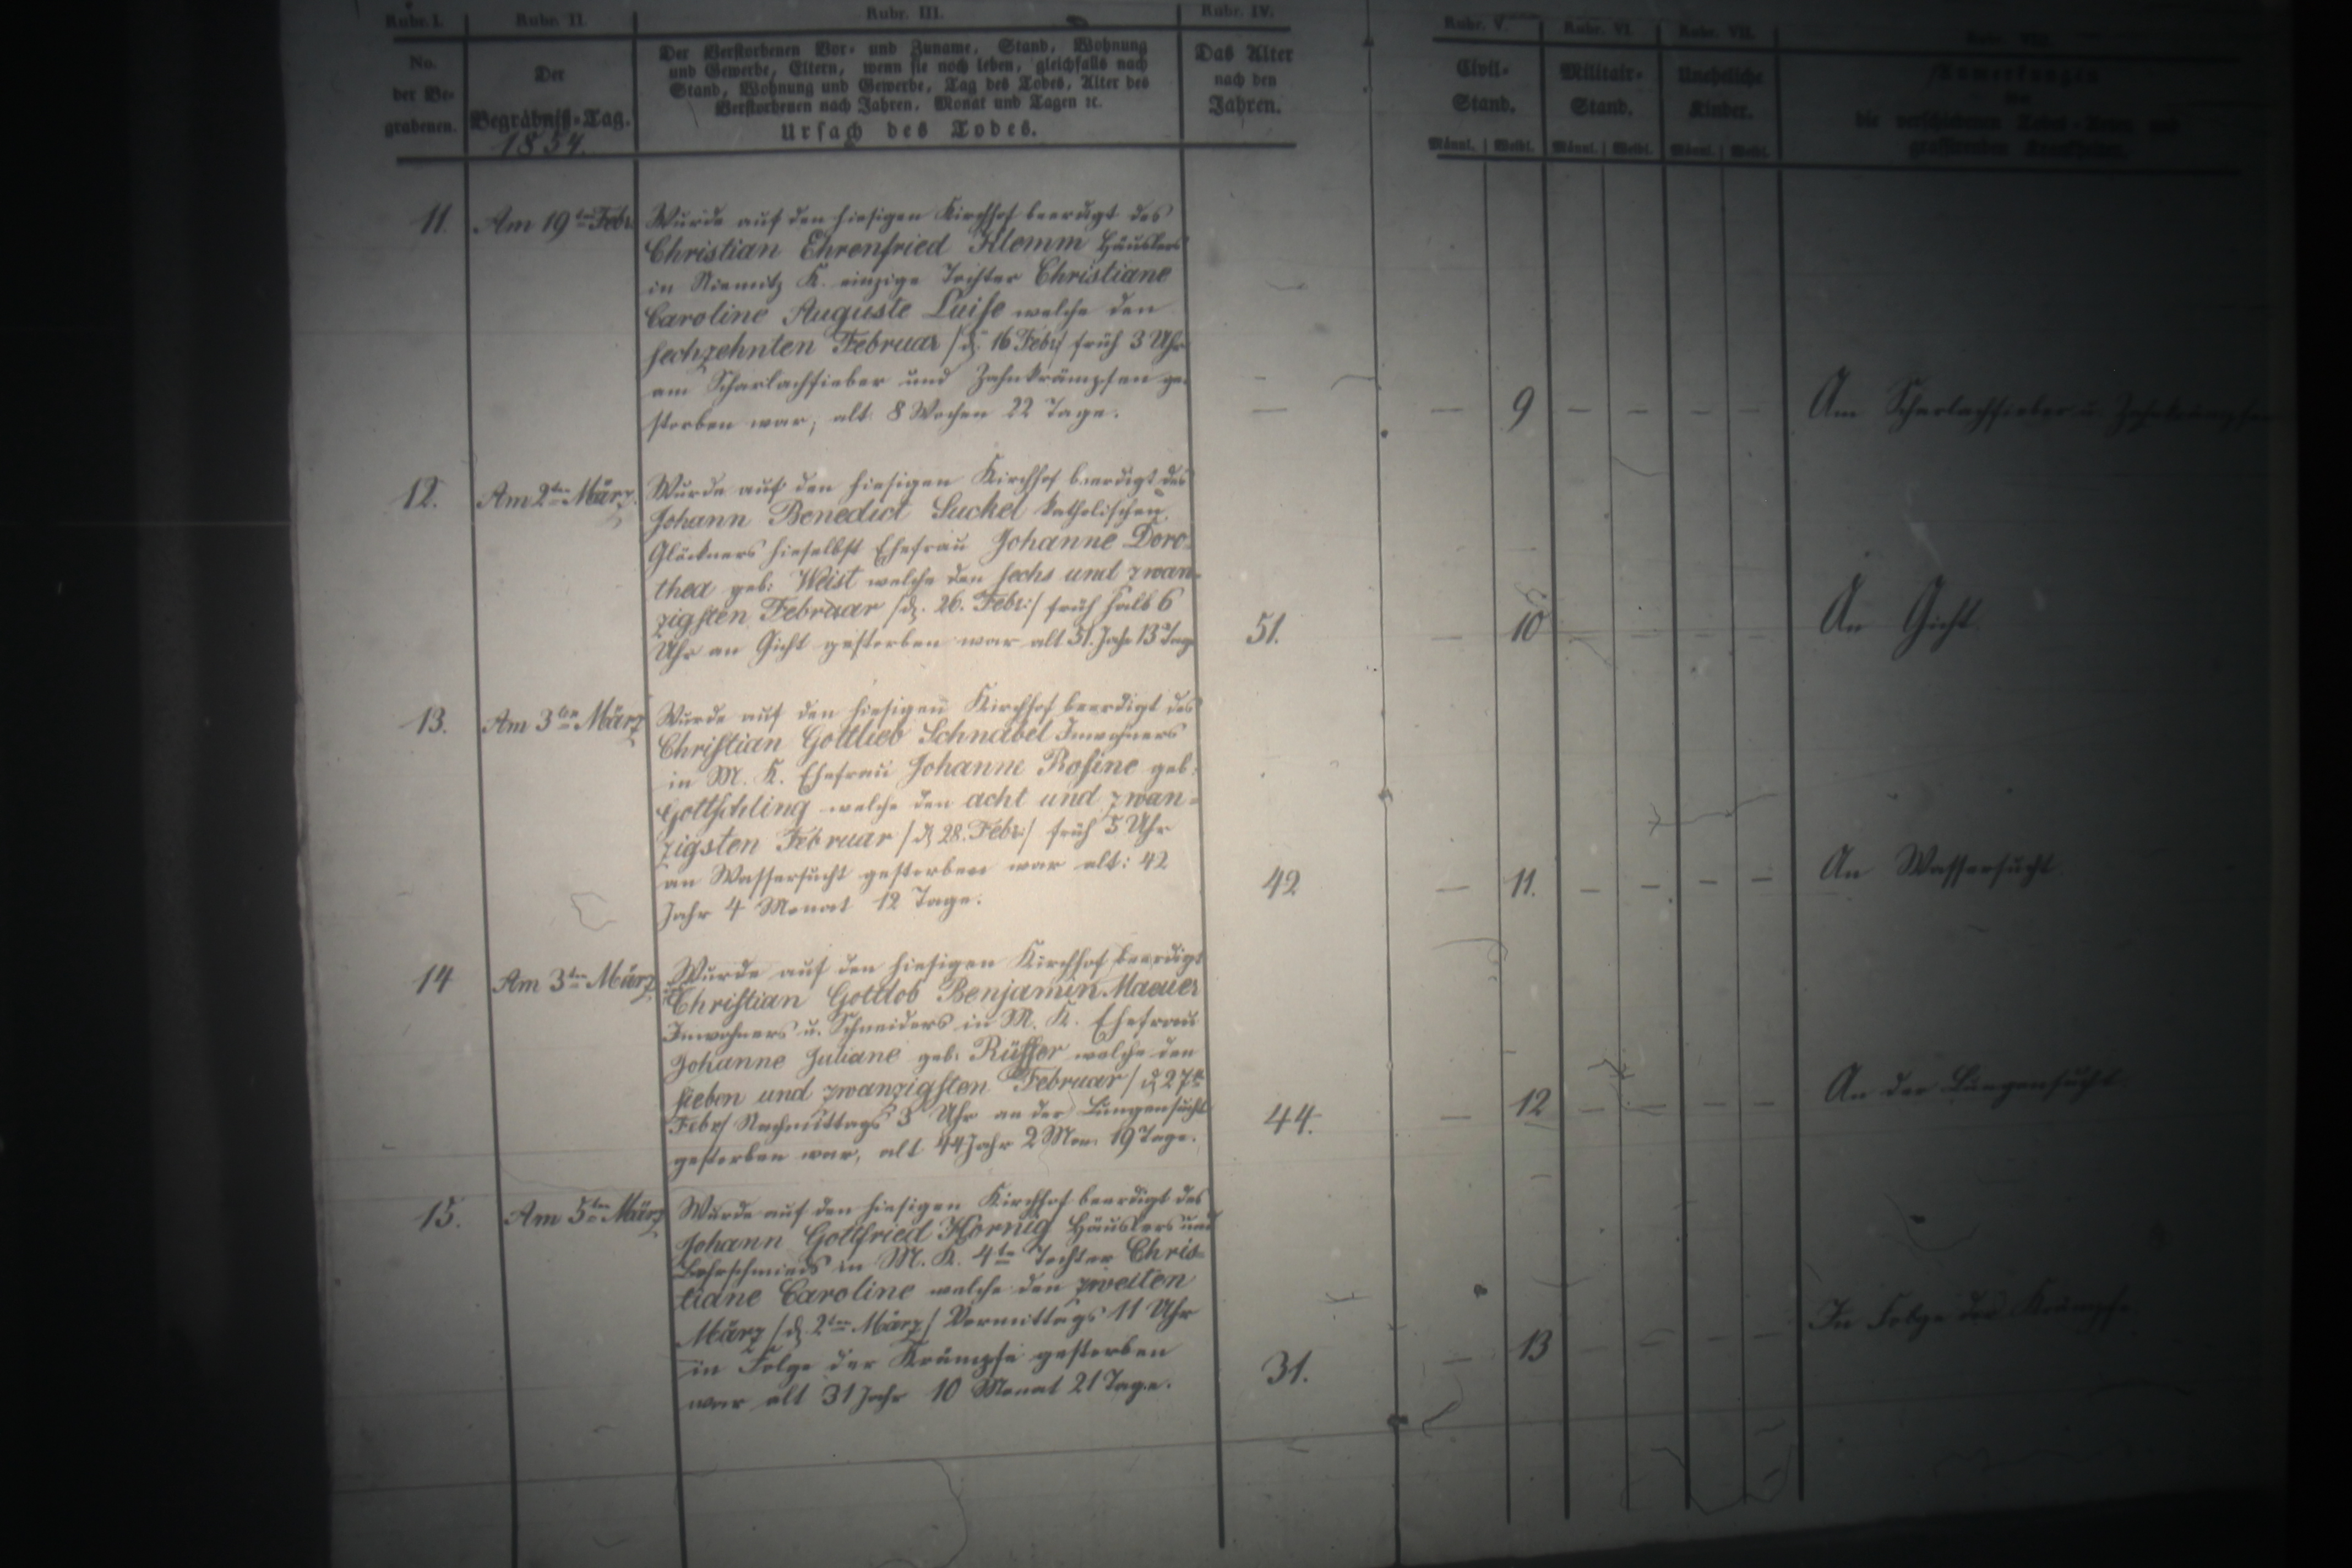 Rubr. I. Rubr. II. Rubr. III. Rubr. IV. Rubr. V. Rubr. VI. Rubr. VII. Rubr. VIII.
No.
der Be-
grabenen.
Der
Begräbniß-Tag.
1854.
Der Verstorbenen Vor- und Zuname, Stand, Wohnung
und Gewerbe, Eltern, wenn sie noch leben, gleichfalls nach
Stand, Wohnung und Gewerbe, Tag des Todes, Alter des
Verstorbenen nach Jahren, Monat und Tagen ꝛc.
Ursach des Todes.
Das Alter
nach den
Jahren.
Civil-
Stand.
Männl. Weibl.
Militair-
Stand.
Männl. Weibl.
Uneheliche
Kinder.
Männl. Weibl.
Bemerkungen
die verschiedenen Todes-Arten und
grassirenden Krankheiten.
11. Am 19ten Febr.
Wurde auf den hiesigen Kirchhof beerdigt des
Christian Ehrenfried Klemm Häuslers
in Niemitz K. einzige Tochter Christiane
Caroline Auguste Luise welche den
sechzehnten Februar /d. 16 Febr/ früh 3 Uhr
am Scharlachfieber und Zahnkrämpfen ge-
storben war, alt: 8 Wochen 22 Tage.
— — 9 — — — — Am Scharlachfieber u. Zahnkrämpfen
12. Am 2ten März.
Wurde auf den hiesigen Kirchhof beerdigt des
Johann Benedict Suckel katholischen
Glöckners hieselbst Ehefrau Johanne Doro-
thea geb: Weist welche den sechs und zwan-
zigsten Februar /d. 26. Febr:/ früh halb 6
Uhr an Gicht gestorben war alt 51. Jahr 13 Tage
51. — 10 — — — — An Gicht
13. Am 3ten März
Wurde auf den hiesigen Kirchhof beerdigt des
Christian Gottlieb Schnabel Inwohners
in M. K. Ehefrau Johanne Rosine geb:
Gottschling welche den acht und zwan-
zigsten Februar /d. 28. Febr:/ früh 5 Uhr
an Wassersucht gestorben war alt: 42
Jahr 4 Monat 12 Tage.
42 — 11. — — — — An Wassersucht
14 Am 3ten März
Wurde auf den hiesigen Kirchhof beerdigt
Christian Gottlob Benjamin Maeuer
Inwohners u. Schneiders in M. K. Ehefrau
Johanne Juliane geb: Rüffer welche den
sieben und zwanzigsten Februar / d. 27te
Febr/ Nachmittags 3 Uhr an der Lungensucht
gestorben war, alt 44 Jahr 2 Mon. 19 Tage.
44. — 12 — — — — An der Lungensucht
15. Am 5ten März
Wurde auf den hiesigen Kirchhof beerdigt des
Johann Gottfried Hornig Häuslers und
in M. K. 4te Tochter Chris-
tiane Caroline welche den zweiten
März /d. 2ten März/ Vormittags 11 Uhr
in Folge der Krämpfe gestorben
war alt 31 Jahr 10 Monat 21 Tage.
31. — 13 — — — — In Folge der Krämpfe